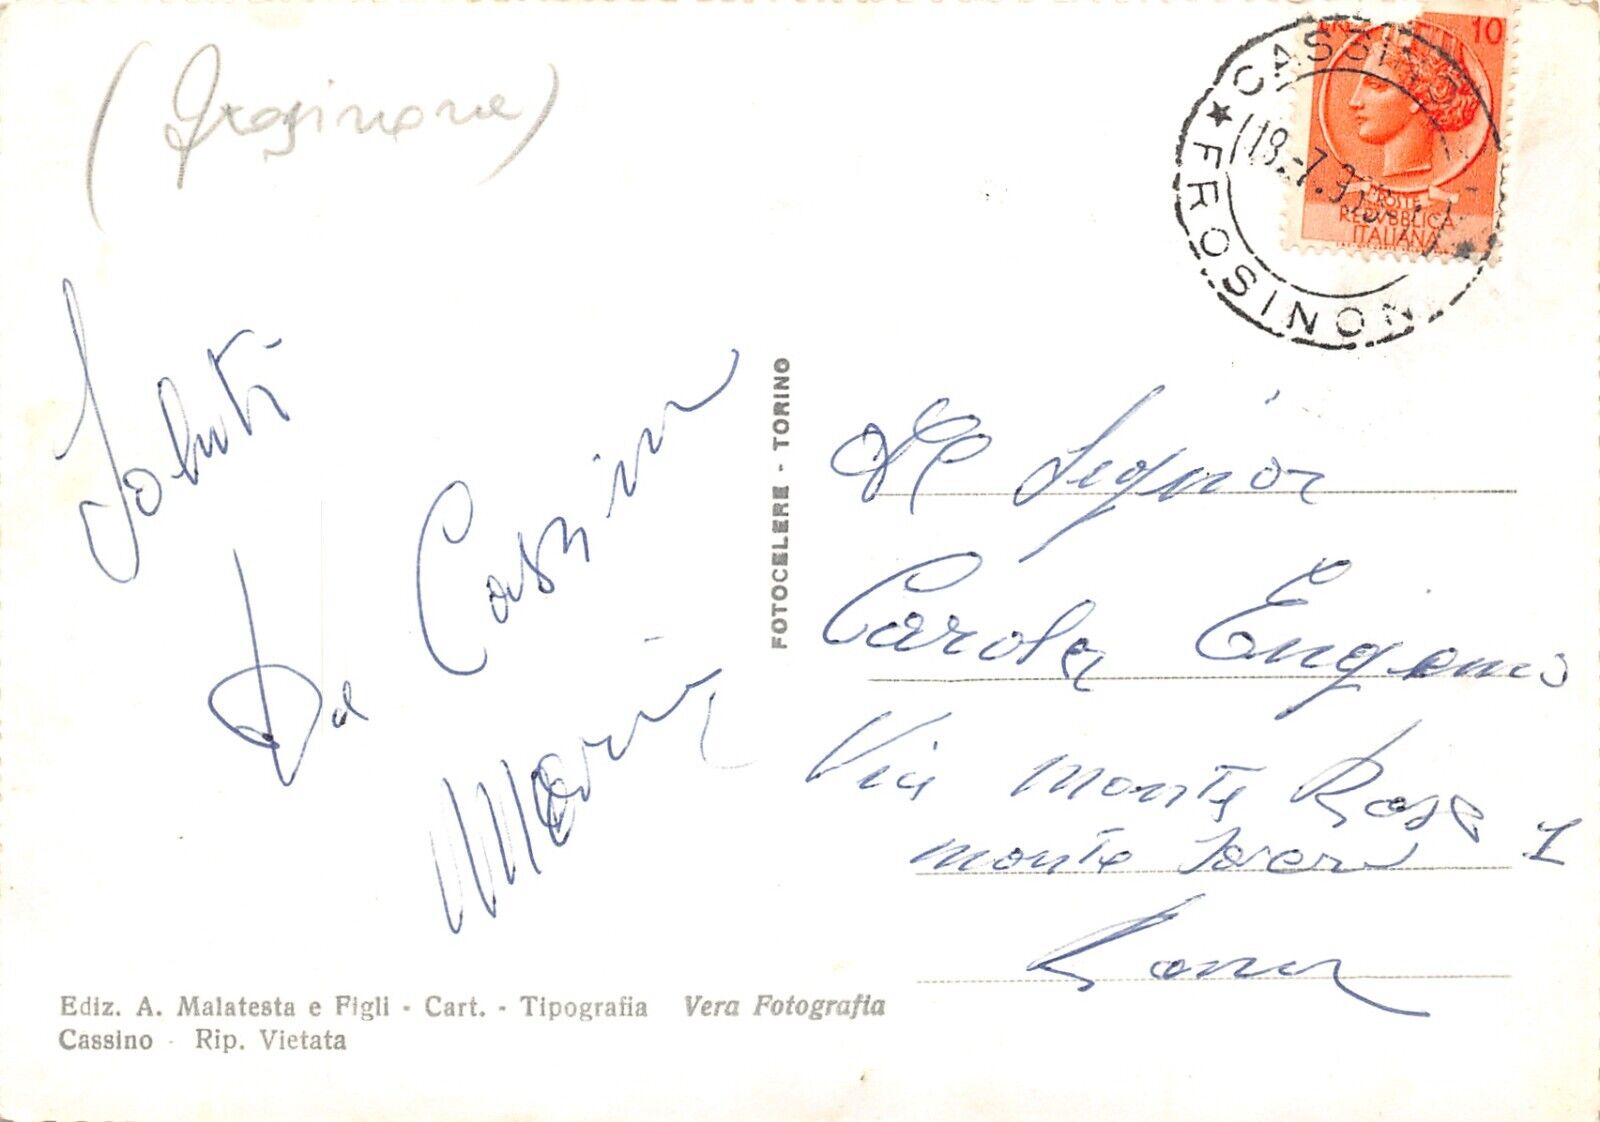 (Frosinone)
10
CASSINO
★ FROSINONE ★
18.-7.
POSTE
REPVBBLICA
ITALIANA
Saluti
Da Cassino
Maria
FOTOCELERE - TORINO
Al Signor
Carola Eugenio
Via Monte Rosa 1
Monte Sacro
Roma
Ediz. A. Malatesta e Figli - Cart. - Tipografia Vera Fotografia
Cassino - Rip. Vietata